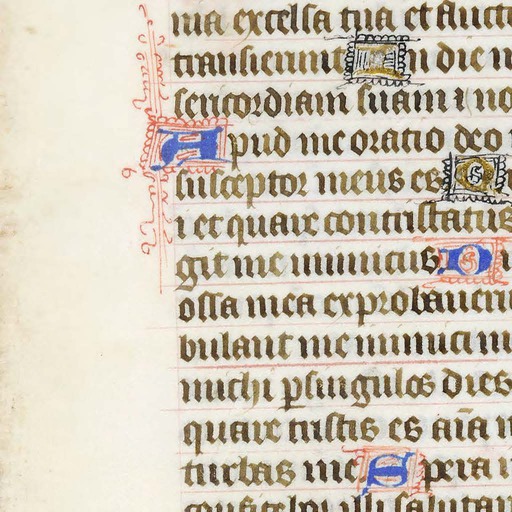 nia excelsa tua et fluct
transierunt In die m
sericordiam suam ⁊ no
Apud me oratio deo
susceptor meus es Q
i et quare contristatus
git me inimicus D
ossa mea exprobaueru
bulant me inimici m
michi ꝑ singulos dies
quare tristis es aīa m
turbas me Spera i
confitebor illi salutar